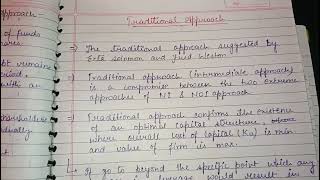 approach-
of funds
ares.
remains
riod,
with an
shareholders
dually
Traditional Approach
⇒ The traditional approach suggested by
Ezra Solomon and Fred Weston.
⇒ Traditional approach (intermediate approach)
is a compromise between the two extreme
approaches of NI & NOI approach
⇒ Traditional approach confirms the existence
of an optimal capital structure, where
overall cost of capital (Ko) is min
and value of firm is max.
If go to beyond the specific point which any
leverage would result in